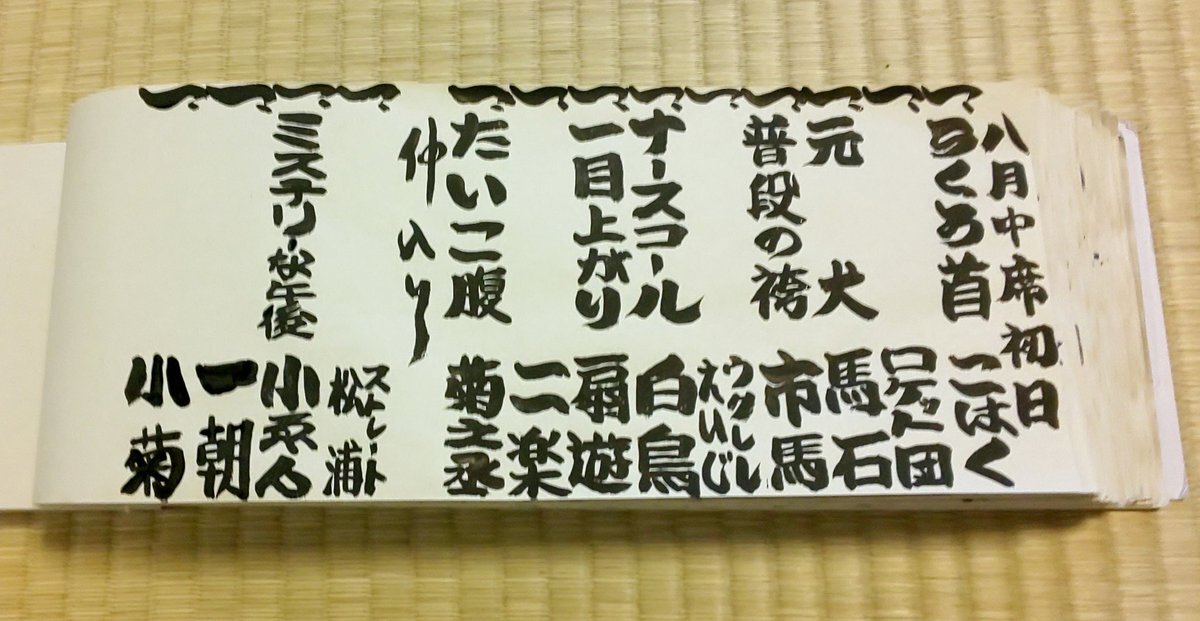 八月中席初日
一、ろくろ首 こはく
一、ロケット団
一、元犬 馬石
一、普段の袴 市馬
一、ウクレレえいじ
一、ナースコール 白鳥
一、一目上がり 扇遊
一、二楽
一、たいこ腹 菊之丞
仲入り
一、ストレート松浦
一、ミステリーな午後 小ゑん
一、一朝
一、小菊